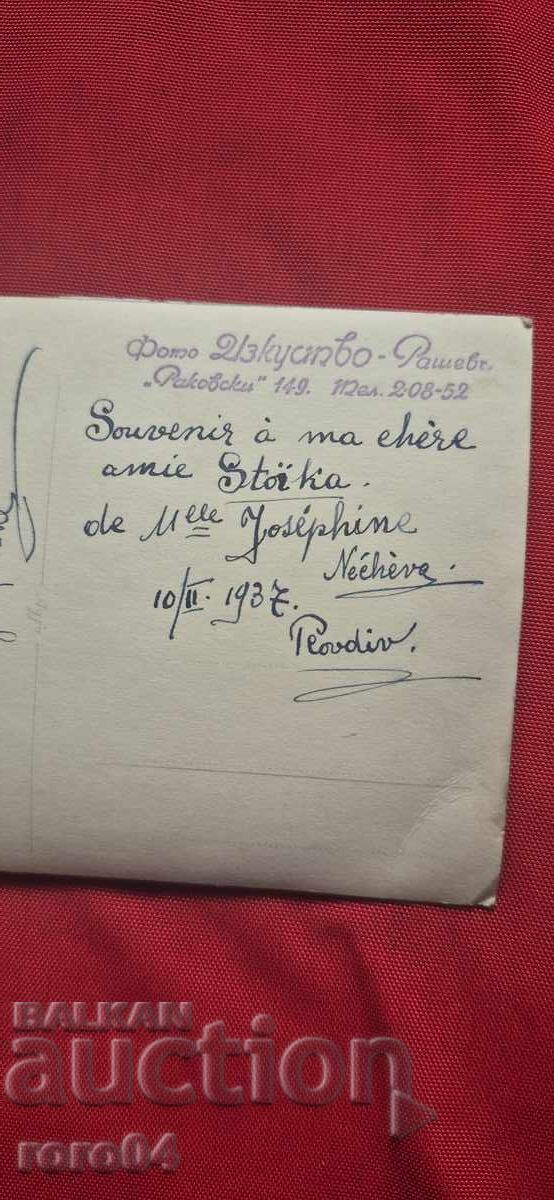 Фото Изкуство - Рашевъ.
„Раковски" 149. Тел. 2-08-52
Souvenir à ma chère
amie Stoïka.
de Mlle Joséphine
Néchèva.
10/II. 1937.
Plovdiv.
BALKAN
auction
roro04